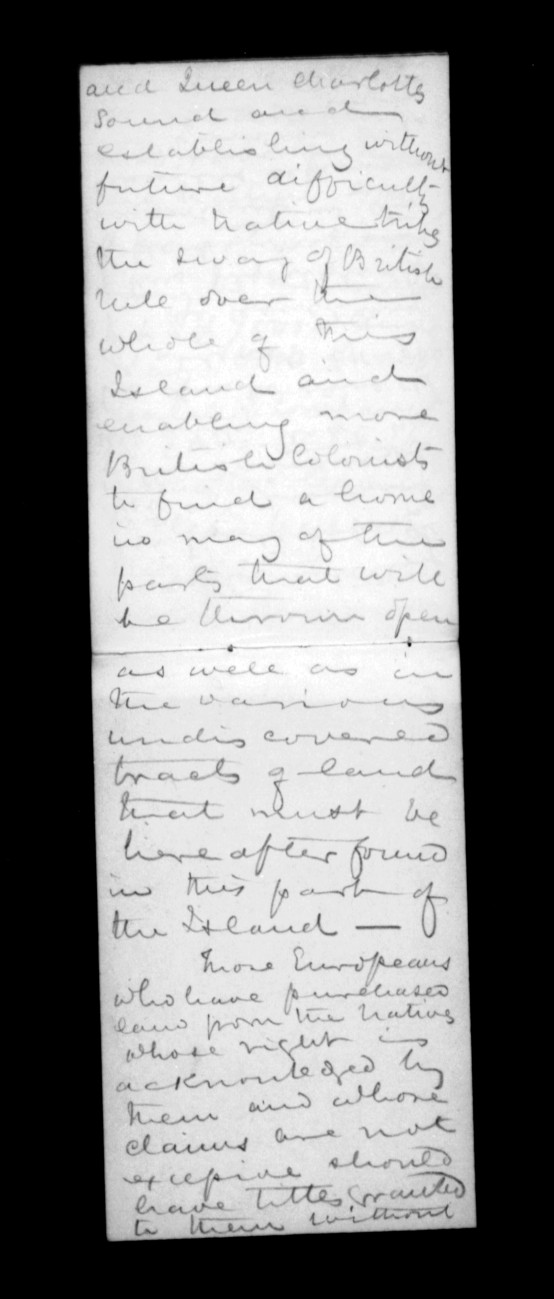 and Queen Charlotte
Sound and
establishing without
future difficulty
with native tribes
the sway of British
rule over the
whole of this
Island and
enabling more
British Colonists
to find a home
in many of the
parts that will
be thrown open
as well as in
the various
undiscovered
tracts of land
that must be
here after found
in this part of
the Island —
Those Europeans
who have purchased
land from the Natives
whose right is
acknowledged by
them and whose
claims are not
should
have titles granted
to them without